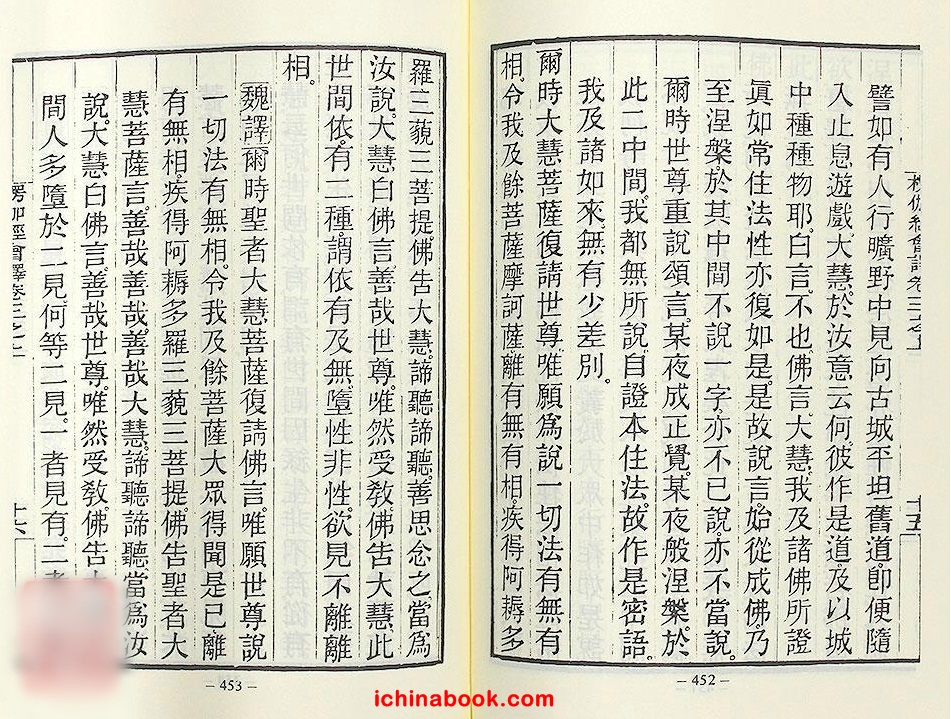 譬如有人行曠野中見向古城平坦舊道。卽便隨
入止息遊戲大慧。於汝意云何。彼作是道。及以城
中種種物耶。白言。不也佛言。大慧。我及諸佛所證
眞如常住法性亦復如是。是故說言。始從成佛。乃
至涅槃。於其中間。不說一字。亦不已說。亦不當說。
爾時世尊重說頌言。某夜成正覺。某夜般涅槃。於
此二中間。我都無所說。自證本住法。故作是密語。
我及諸如來。無有少差別。
爾時大慧菩薩。復請世尊。唯願爲說一切法有無有
相。令我及餘菩薩摩訶薩。離有無有相。疾得阿耨多
十五
452
羅三藐三菩提。佛告大慧。諦聽諦聽。善思念之。當爲
汝說。大慧白佛言。善哉世尊。唯然受敎。佛告大慧。此
世間依。有二種。謂依有及無。墮性非性。欲見不離離
相。
魏譯爾時聖者大慧菩薩。復請佛言。唯願世尊。說
一切法有無相。令我及餘菩薩大眾。得聞是已。離
有無相。疾得阿耨多羅三藐三菩提。佛告聖者大
慧菩薩言。善哉善哉。善哉大慧。諦聽諦聽。當爲汝
說。大慧白佛言。善哉世尊。唯然受敎。佛告
間人多墮於二見。何等二見。一者見有。二
楞伽經會譯卷三之二
十六
453
ichinabook.com